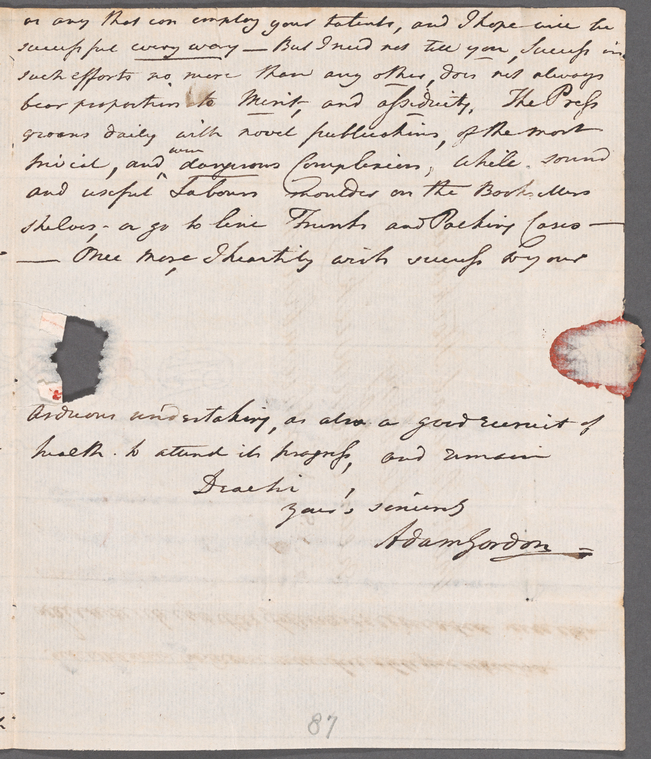 or any that can employ your talents, and I hope will be
successful every way — But I need not tell you, Success in
such efforts no more than any other, does not always
bear proportion to Merit, and assiduity, The Press
groans daily with novel publications, of the most
trivial, and even dangerous Complexion, while sound
and useful Labours moulder on the Booksellers
shelves, – or go to line Trunks and Packing Cases —
— Once More, I heartily wish success to your
Arduous undertaking, as also a good recruit of
health to attend its progress, and remain
Dear Sir,
yours sincerely
Adam Gordon
87